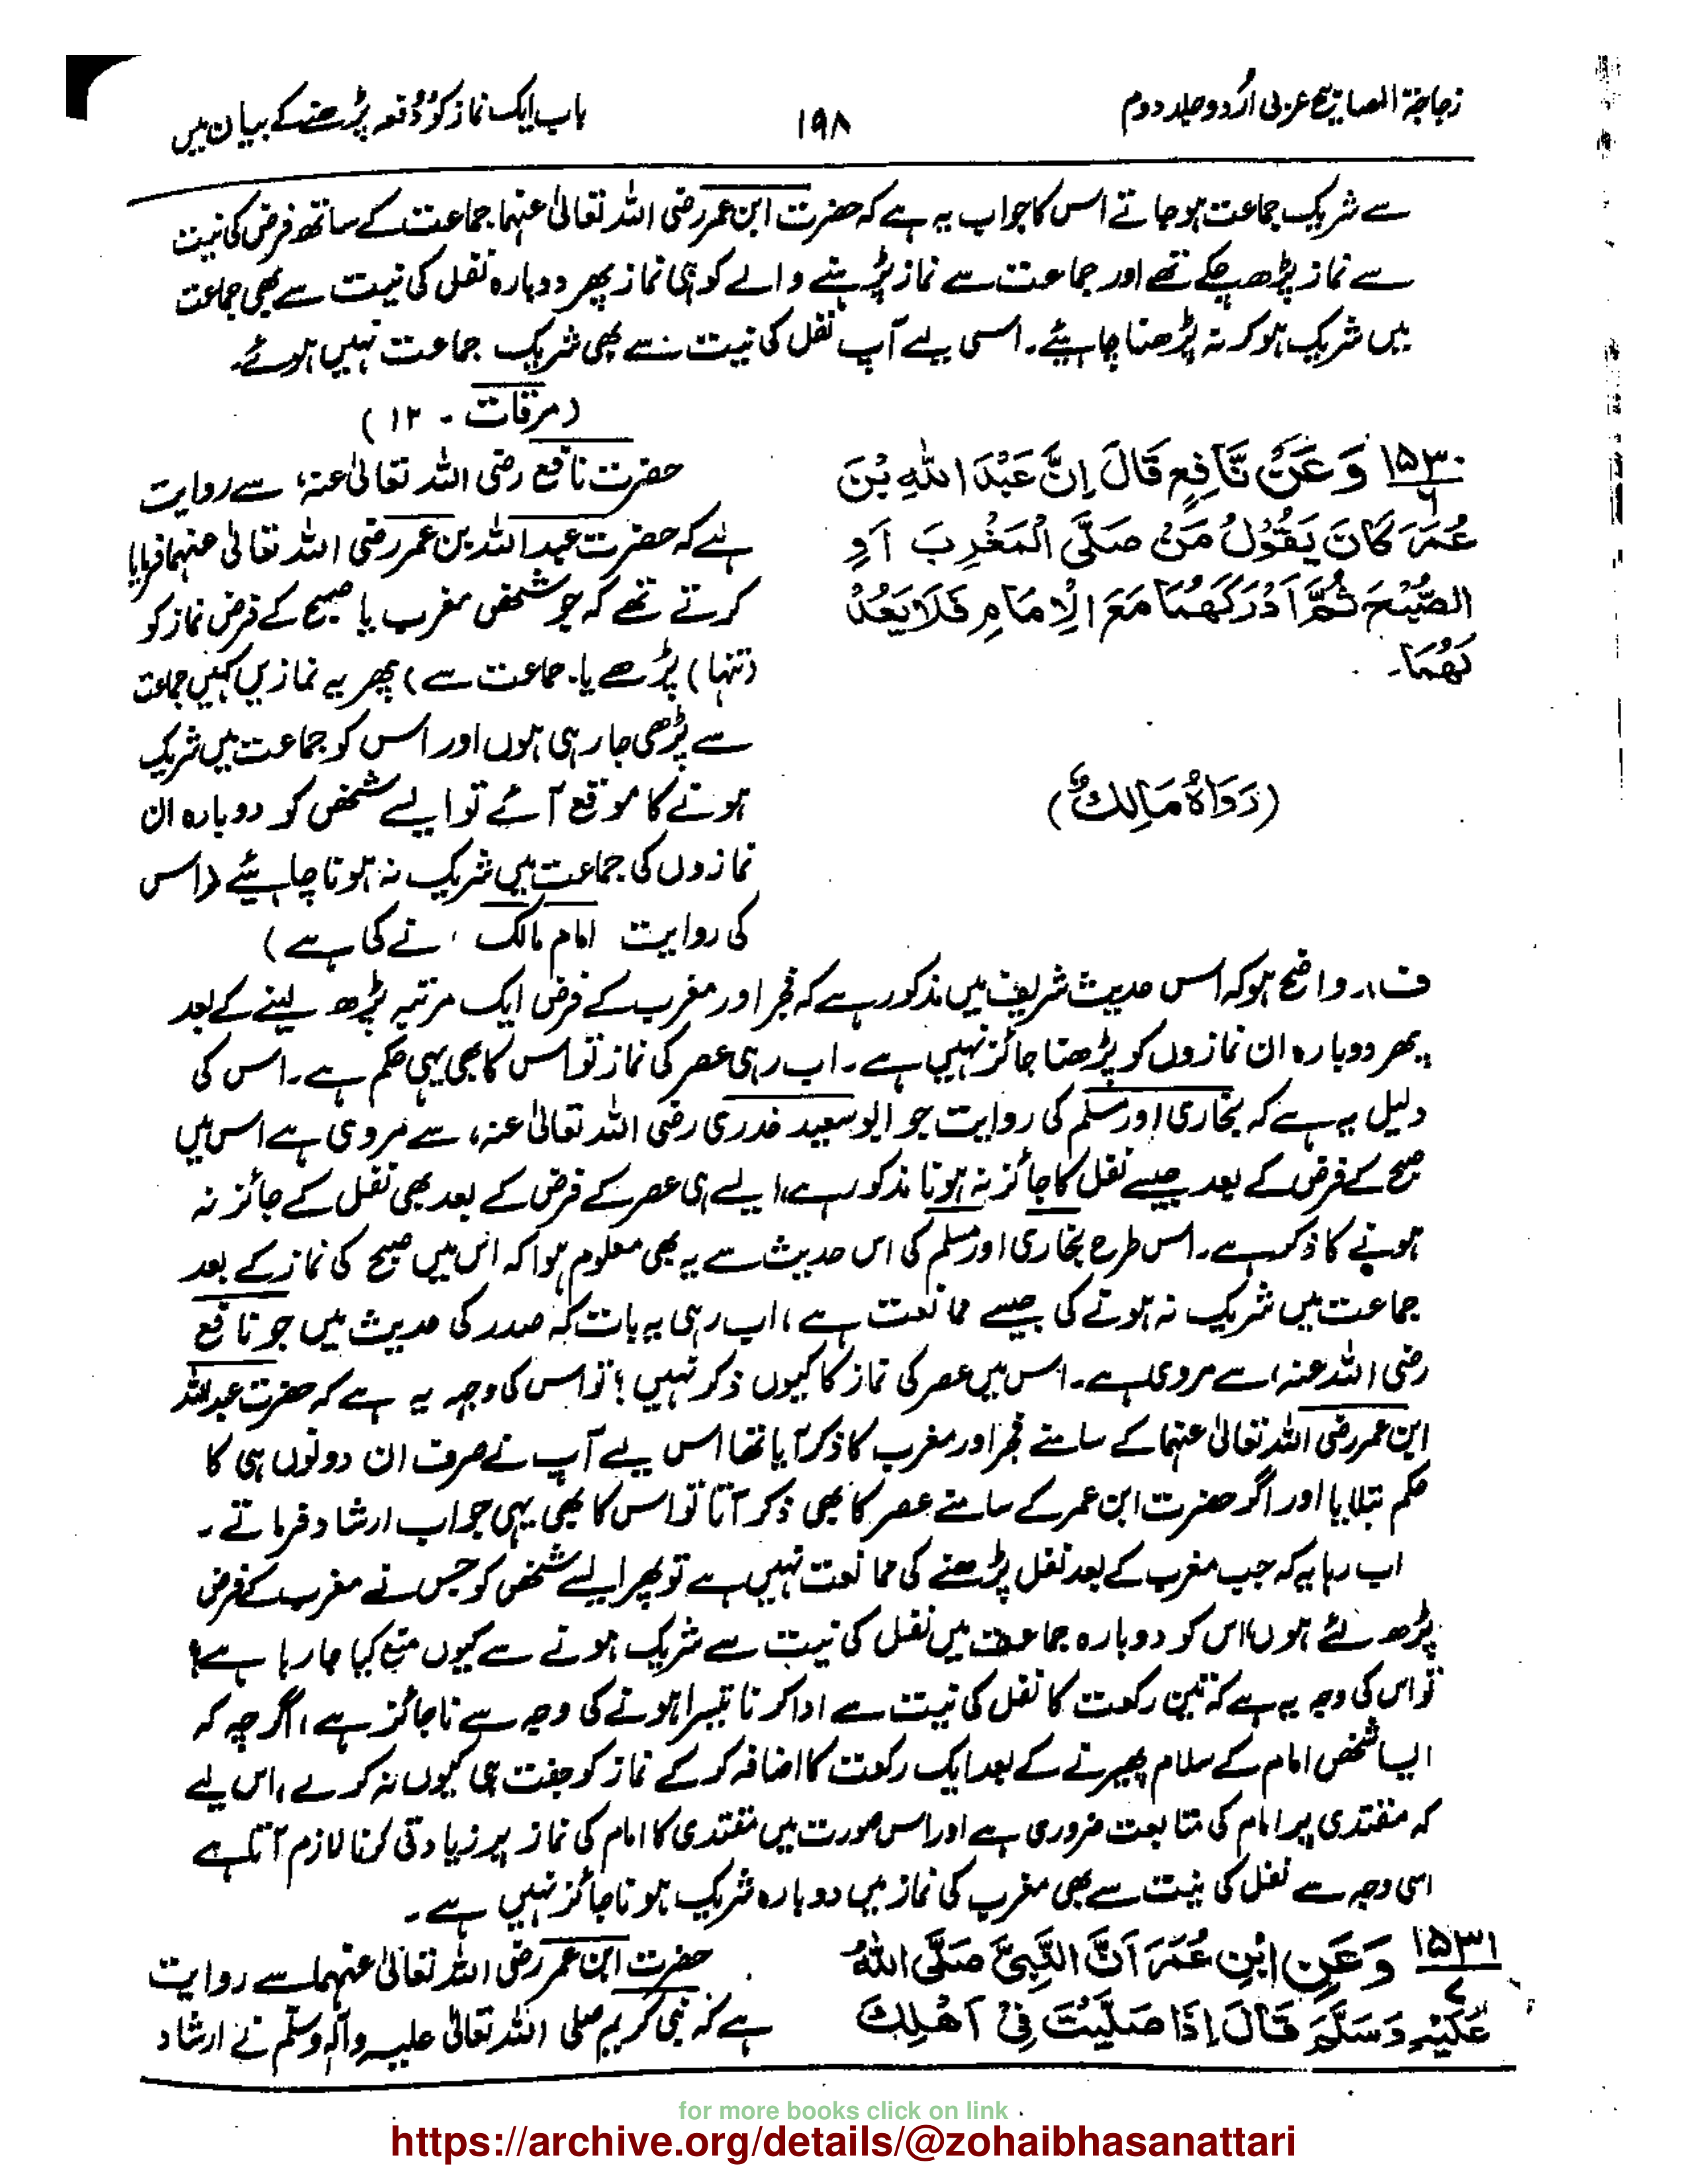 زجاجۃ المصابیح عربی اُردو جلد دوم
۱۹۸
باب ایک نماز کو دُو دفعہ پڑھنے کے بیان میں
سے شریک جماعت ہو جاتے اس کا جواب یہ ہے کہ حضرت ابن عمر رضی اللہ تعالیٰ عنہما جماعت کے ساتھ فرض کی نیت
سے نماز پڑھ چکے تھے اور جماعت سے نماز پڑہنے والے کو ہی نماز پھر دوبارہ نفل کی نیت سے بھی جماعت
میں شریک ہو کر نہ پڑھنا چاہیئے۔ اسی لیے آپ نفل کی نیت سے بھی شریک جماعت نہیں ہوئے۔
(مرقات - ۱۲)
۱۵۳۰/۶ وَعَنْ نَّافِعٍ قَالَ اِنَّ عَبْدَ اللّٰهِ بْنَ
عُمَرَ كَانَ يَقُوْلُ مَنْ صَلَّى الْمَغْرِبَ اَوِ
الصُّبْحَ ثُمَّ اَدْرَكَهُمَا مَعَ الْاِمَامِ فَلَا يَعُدْ
لَهُمَا۔
(رَوَاهُ مَالِكٌ)
حضرت نافع رضی اللہ تعالیٰ عنہ، سے روایت
ہے کہ حضرت عبد اللہ بن عمر رضی اللہ تعالیٰ عنہما فرمایا
کرتے تھے کہ جو شخص مغرب یا صبح کے فرض نماز کو
(تنہا) پڑھے یا۔ جماعت سے) پھر یہ نمازیں کہیں جماعت
سے پڑھی جا رہی ہوں اور اس کو جماعت میں شریک
ہونے کا موقع آئے تو ایسے شخص کو دوبارہ ان
نمازوں کی جماعت میں شریک نہ ہونا چاہیئے (اس
کی روایت امام مالک، نے کی ہے)
ف:۔ واضح ہو کہ اس حدیث شریف میں مذکور ہے کہ فجر اور مغرب کے فرض ایک مرتبہ پڑھ لینے کے بعد
پھر دوبارہ ان نمازوں کو پڑھنا جائز نہیں ہے۔ اب رہی عصر کی نماز تو اس کا بھی یہی حکم ہے۔ اس کی
دلیل یہ ہے کہ بخاری اور مسلم کی روایت جو ابو سعید خدری رضی اللہ تعالیٰ عنہ، سے مروی ہے اس میں
صبح کے فرض کے بعد جیسے نفل کا جائز نہ ہونا مذکور ہے، ایسے ہی عصر کے فرض کے بعد بھی نفل کے جائز نہ
ہونے کا ذکر ہے۔ اس طرح بخاری اور مسلم کی اس حدیث سے یہ بھی معلوم ہوا کہ اس میں صبح کی نماز کے بعد
جماعت میں شریک نہ ہونے کی جیسے ممانعت ہے، اب رہی یہ بات کہ صدر کی حدیث میں جو نافع
رضی اللہ عنہ، سے مروی ہے۔ اس میں عصر کی نماز کا کیوں ذکر نہیں؛ تو اس کی وجہ یہ ہے کہ حضرت عبد اللہ
ابن عمر رضی اللہ تعالیٰ عنہما کے سامنے فجر اور مغرب کا ذکر آیا تھا اس لیے آپ نے صرف ان دونوں ہی کا
حکم بتلایا اور اگر حضرت ابن عمر کے سامنے عصر کا بھی ذکر آتا تو اس کا بھی یہی جواب ارشاد فرماتے۔
اب رہا یہ کہ جب مغرب کے بعد نفل پڑھنے کی ممانعت نہیں ہے تو پھر ایسے شخص کو جس نے مغرب کے فرض
پڑھ لئے ہوں اس کو دوبارہ جماعت میں نفل کی نیت سے شریک ہونے سے کیوں منع کیا جا رہا ہے؟
تو اس کی وجہ یہ ہے کہ تین رکعت کا نفل کی نیت سے ادا کرنا تیسرا ہونے کی وجہ سے ناجائز ہے، اگرچہ کہ
ایسا شخص امام کے سلام پھیرنے کے بعد ایک رکعت کا اضافہ کر کے نماز کو جفت ہی کیوں نہ کرے، اس لیے
کہ مقتدی پر امام کی متابعت ضروری ہے اور اس صورت میں مقتدی کا امام کی نماز پر زیادتی کرنا لازم آتا ہے
اسی وجہ سے نفل کی نیت سے بھی مغرب کی نماز میں دوبارہ شریک ہونا جائز نہیں ہے۔
۱۵۳۱/۷ وَعَنِ ابْنِ عُمَرَ اَنَّ النَّبِيَّ صَلَّى اللّٰهُ
عَلَيْهِ وَسَلَّمَ قَالَ اِذَا صَلَّيْتَ فِيْ اَهْلِكَ
حضرت ابن عمر رضی اللہ تعالیٰ عنہما سے روایت
ہے کہ نبی کریم صلی اللہ تعالیٰ علیہ وآلہ وسلم نے ارشاد
for more books click on link
https://archive.org/details/@zohaibhasanattari